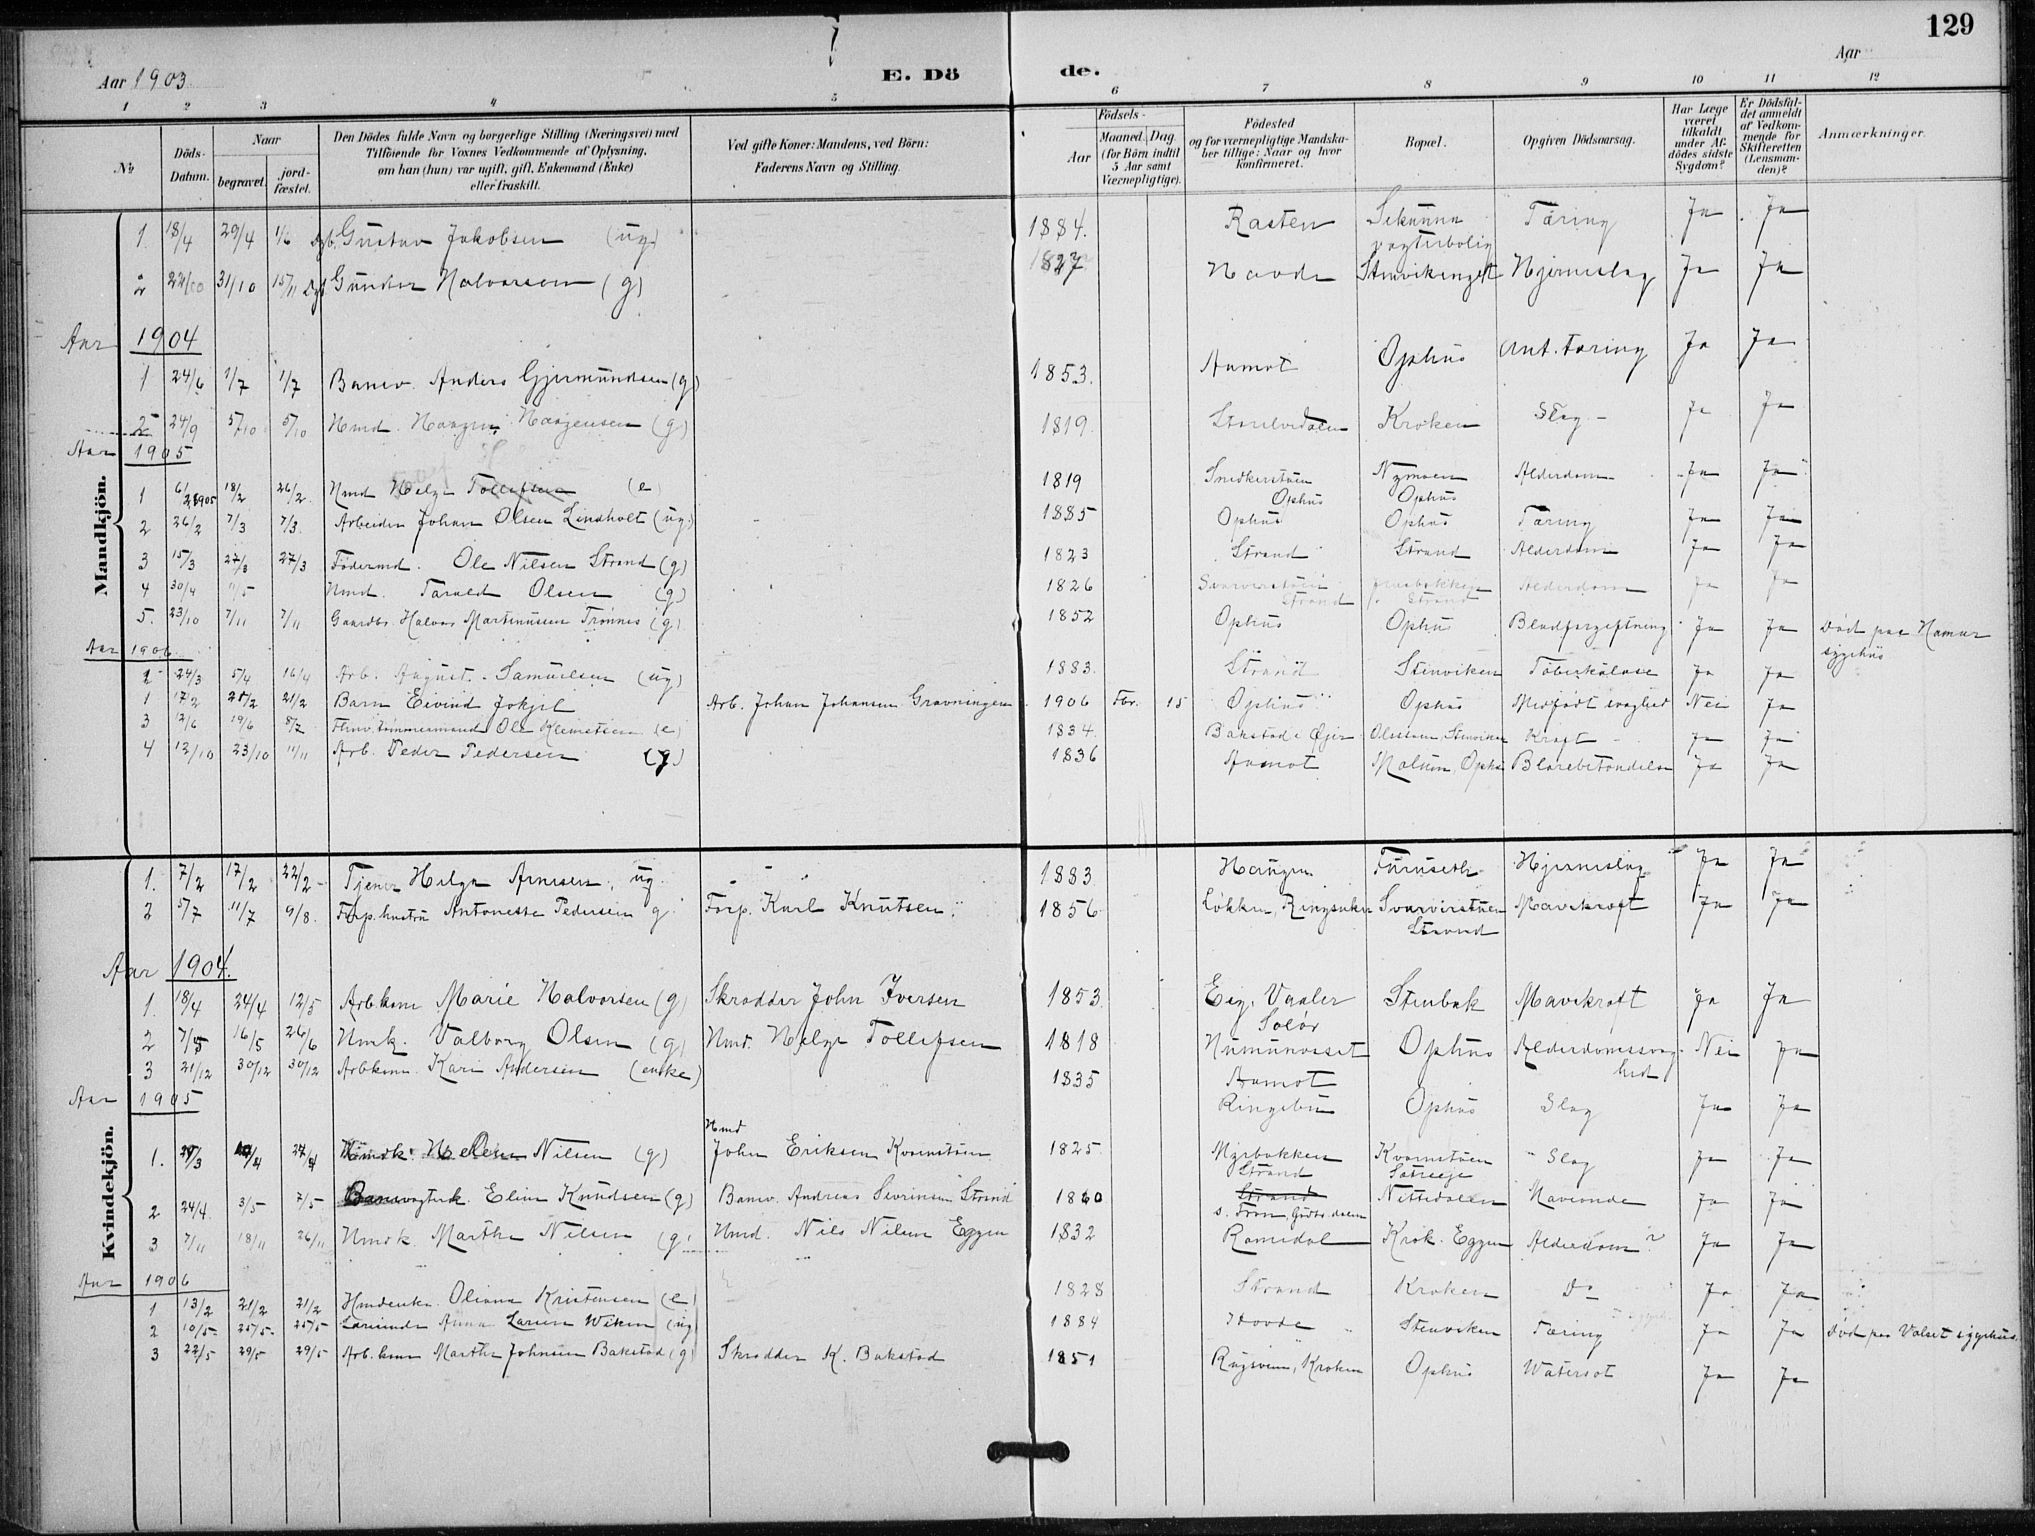 129
Aar 1903
E. Dö de.
Aar
1 2 3 4 5 6 7 8 9 10 11 12
№
Döds-Datum.
Naar begravet. jord-fæstet.
Den Dödes fulde Navn og borgerlige Stilling (Næringsvei) med Tilföiende for Voxnes Vedkommende af Oplysning, om han (hun) var ugift, gift, Enkemand (Enke) eller fraskilt.
Ved gifte Koner: Mandens, ved Börn: Faderens Navn og Stilling.
Födsels-
Aar Maaned. Dag. (for Börn indtil 5 Aar samt Værnepligtige).
Födested og for værnepligtige Mandskaber tillige: Naar og hvor konfirmeret.
Bopæl.
Opgiven Dödsaarsag.
Har Læge været tilkaldt under Afdödes sidste Sygdom?
Er Dödsfaldet anmeldt af Vedkommende for Skifteretten (Lensmanden)?
Anmærkninger.
Mandkjön.
1. 18/4 29/4 1/6 Gustav Jakobsen (ug) 1884. Rasten vogterbolig Tæring Ja Ja
2 22/10 31/10 15/11 Gunder Halvorsen (g) 1827 Hovde Hjerneslag Ja Ja
Aar 1904
1 24/6 1/7 1/7 Banev. Anders Gjermundsen (g) 1853. Aamot Ophus Ant. tæring Ja Ja
2 24/9 5/10 5/10 Hmd. Haagen Haagensen (g) 1819. Storelvdalen Kroken Slag - Ja Ja
Aar 1905
1 6/2 1905 18/2 26/2 Hmd Helge Tollefsen (e) 1819 Snedkerstuen Ophus Nymoen Ophus Alderdom Ja Ja
2 26/2 7/3 7/3. Arbeider Johan Olsen Lindholt (ug.) 1885 Ophus Ophus Tæring Ja Ja
3 15/3 27/3 27/3 Föderaad. Ole Nilsen Strand (g) 1823 Strand Strand Alderdom Ja Ja
4 30/4 11/5 Hmd. Tarald Olsen (g) 1826 Svarverstuen Strand Strand Alderdom Ja Ja
5. 23/10 7/11 7/11 Gaardbr. Halvor Martinusen Trönnes (g) 1852 Ophus Ophus Blodforgeftning Ja Ja Död paa Hamar sygehus
Aar 1906
2 24/3 5/4 16/4 Arb. August. Samuelsen (ug) 1883. Strand Stenviken Töberkulose Ja Ja
1 17/2 21/2 21/2 Barn Eivind Jokjel Arb. Johan Johansen Gravningen 1906 Fbr. 15 Ophus Ophus Medfödt svaghed Nei Ja
3 12/6 19/6 8/7 tömmermand Ole Klemetsen (e) 1834. Bakstad i Öier Stenviken Kræft - Ja Ja
4 12/10 23/10 11/11 Arb. Peder Pedersen (g) 1836 Aamot Ophus Blærebetændelse Ja Ja
Kvindekjön.
1. 7/2 17/2 22/2 - Tjener Helga Arnesen, ug. 1883 Haugen Furuseth Hjerneslag Ja Ja
2 5/7 11/7 9/8. Forp. hustru Antonette Pedersen g Forp. Karl Knutsen. 1856 Lökken, Ringsaker Svarverstuen Strand Mavekræft Ja Ja
Aar 1904.
1. 18/4 24/4 12/5 Arbkone Marie Halvorsen (g) Skrædder John Iversen 1853. Eig. Vaaler Solör Stenbæk Mavekræft Ja Ja
2 7/5 16/5 26/6 Hmk. Valborg Olsen (g) Hmd. Helge Tollefsen 1818 Ophus Alderdomssvaghed Nei Ja
3 21/12 30/12 30/12 Arbkone Kari Andersen (enke) 1835 Aamot Ringebu Ophus Slag Ja Ja
Aar 1905
1. 29/3 /4 27/4 Hmdk. Helene Nilsen (g) Hmd John Eriksen Kvernstuen 1825. Myrbakken Strand Kvernstuen Slag Ja Ja
2 24/4. 3/5 7/5 Banevogterk. Eline Knudsen (g) Banev. Andreas Severinsen Strand 1860 Strand s. Fron, Gudbr.dalen Nittedalen Ja Ja
3 7/11 18/11 26/11 Hmdk. Marthe Nilsen (g) Hmd. Nils Nilsen Eggen 1832 Romsdal Krok. Eggen Alderdom? Ja Ja
Aar 1906
1 13/2 21/2 21/2 Hmdenke. Oliana Kristensen (e) 1828 Strand Kroken Do Ja Ja
2 10/5 25/5. 25/5 Anna Larsen Wiken (ug) 1884 Hovde Stenviken Tæring Ja Ja Död paa Valset sygehus
3 22/5 29/5 29/5 Arb. kone Marthe Johnsen Bakstad (g) Skrædder K. Bakstad 1851 Rugsveen, Kroken Ophus Watersot Ja Ja